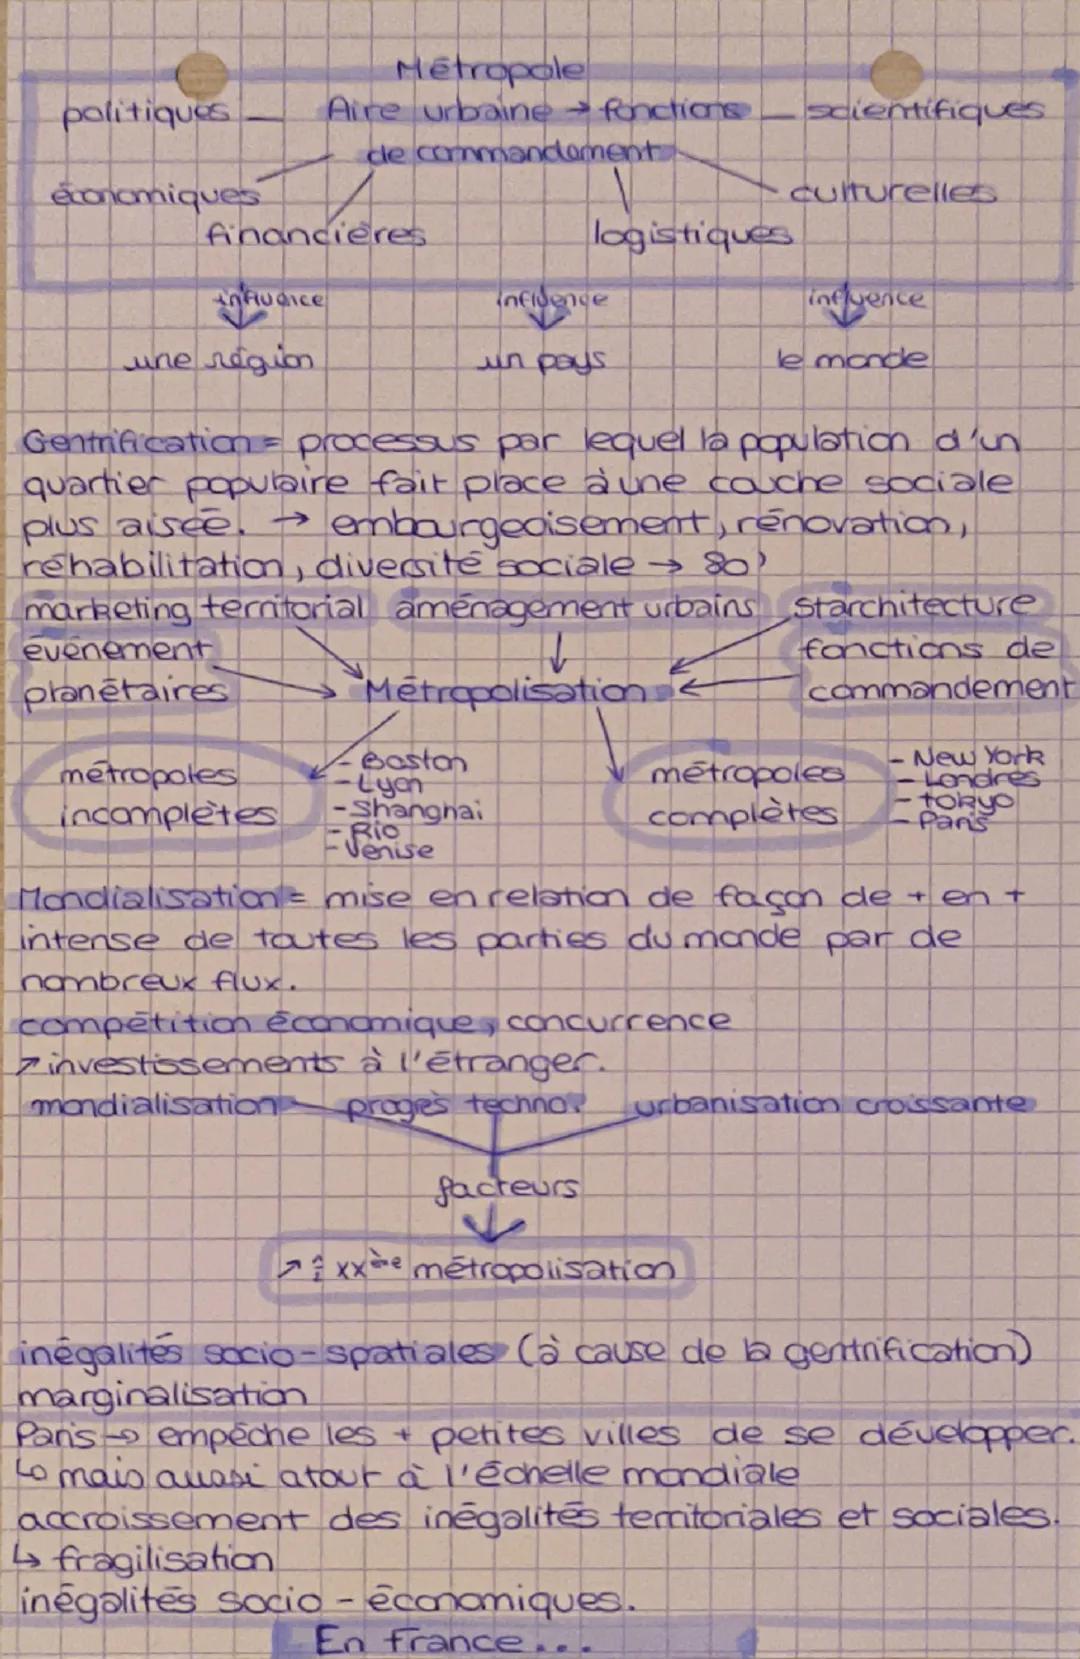 Métropole
politiques — Aire urbaine → fonctions — scientifiques
de commandement
économiques culturelles
financières logistiques
influence influence influence
une région un pays le monde
Gentrification = processus par lequel la population d'un
quartier populaire fait place à une couche sociale
plus aisée. → embourgeoisement, rénovation,
réhabilitation, diversité sociale → 80'
marketing territorial aménagement urbains starchitecture
événement fonctions de
planétaires Métropolisation commandement
métropoles - Boston métropoles - New York
- Lyon - Londres
incomplètes - Shanghai complètes - tokyo
- Rio - Paris
- Venise
Mondialisation = mise en relation de façon de + en +
intense de toutes les parties du monde par de
nombreux flux.
compétition économique, concurrence
↗ investissements à l'étranger.
mondialisation progès techno. urbanisation croissante
facteurs
↗ xxème métropolisation
inégalités socio-spatiales (à cause de la gentrification)
marginalisation
Paris → empêche les + petites villes de se développer.
↳ mais aussi atout à l'échelle mondiale
accroissement des inégalités territoriales et sociales.
↳ fragilisation
inégalités socio-économiques.
En france...